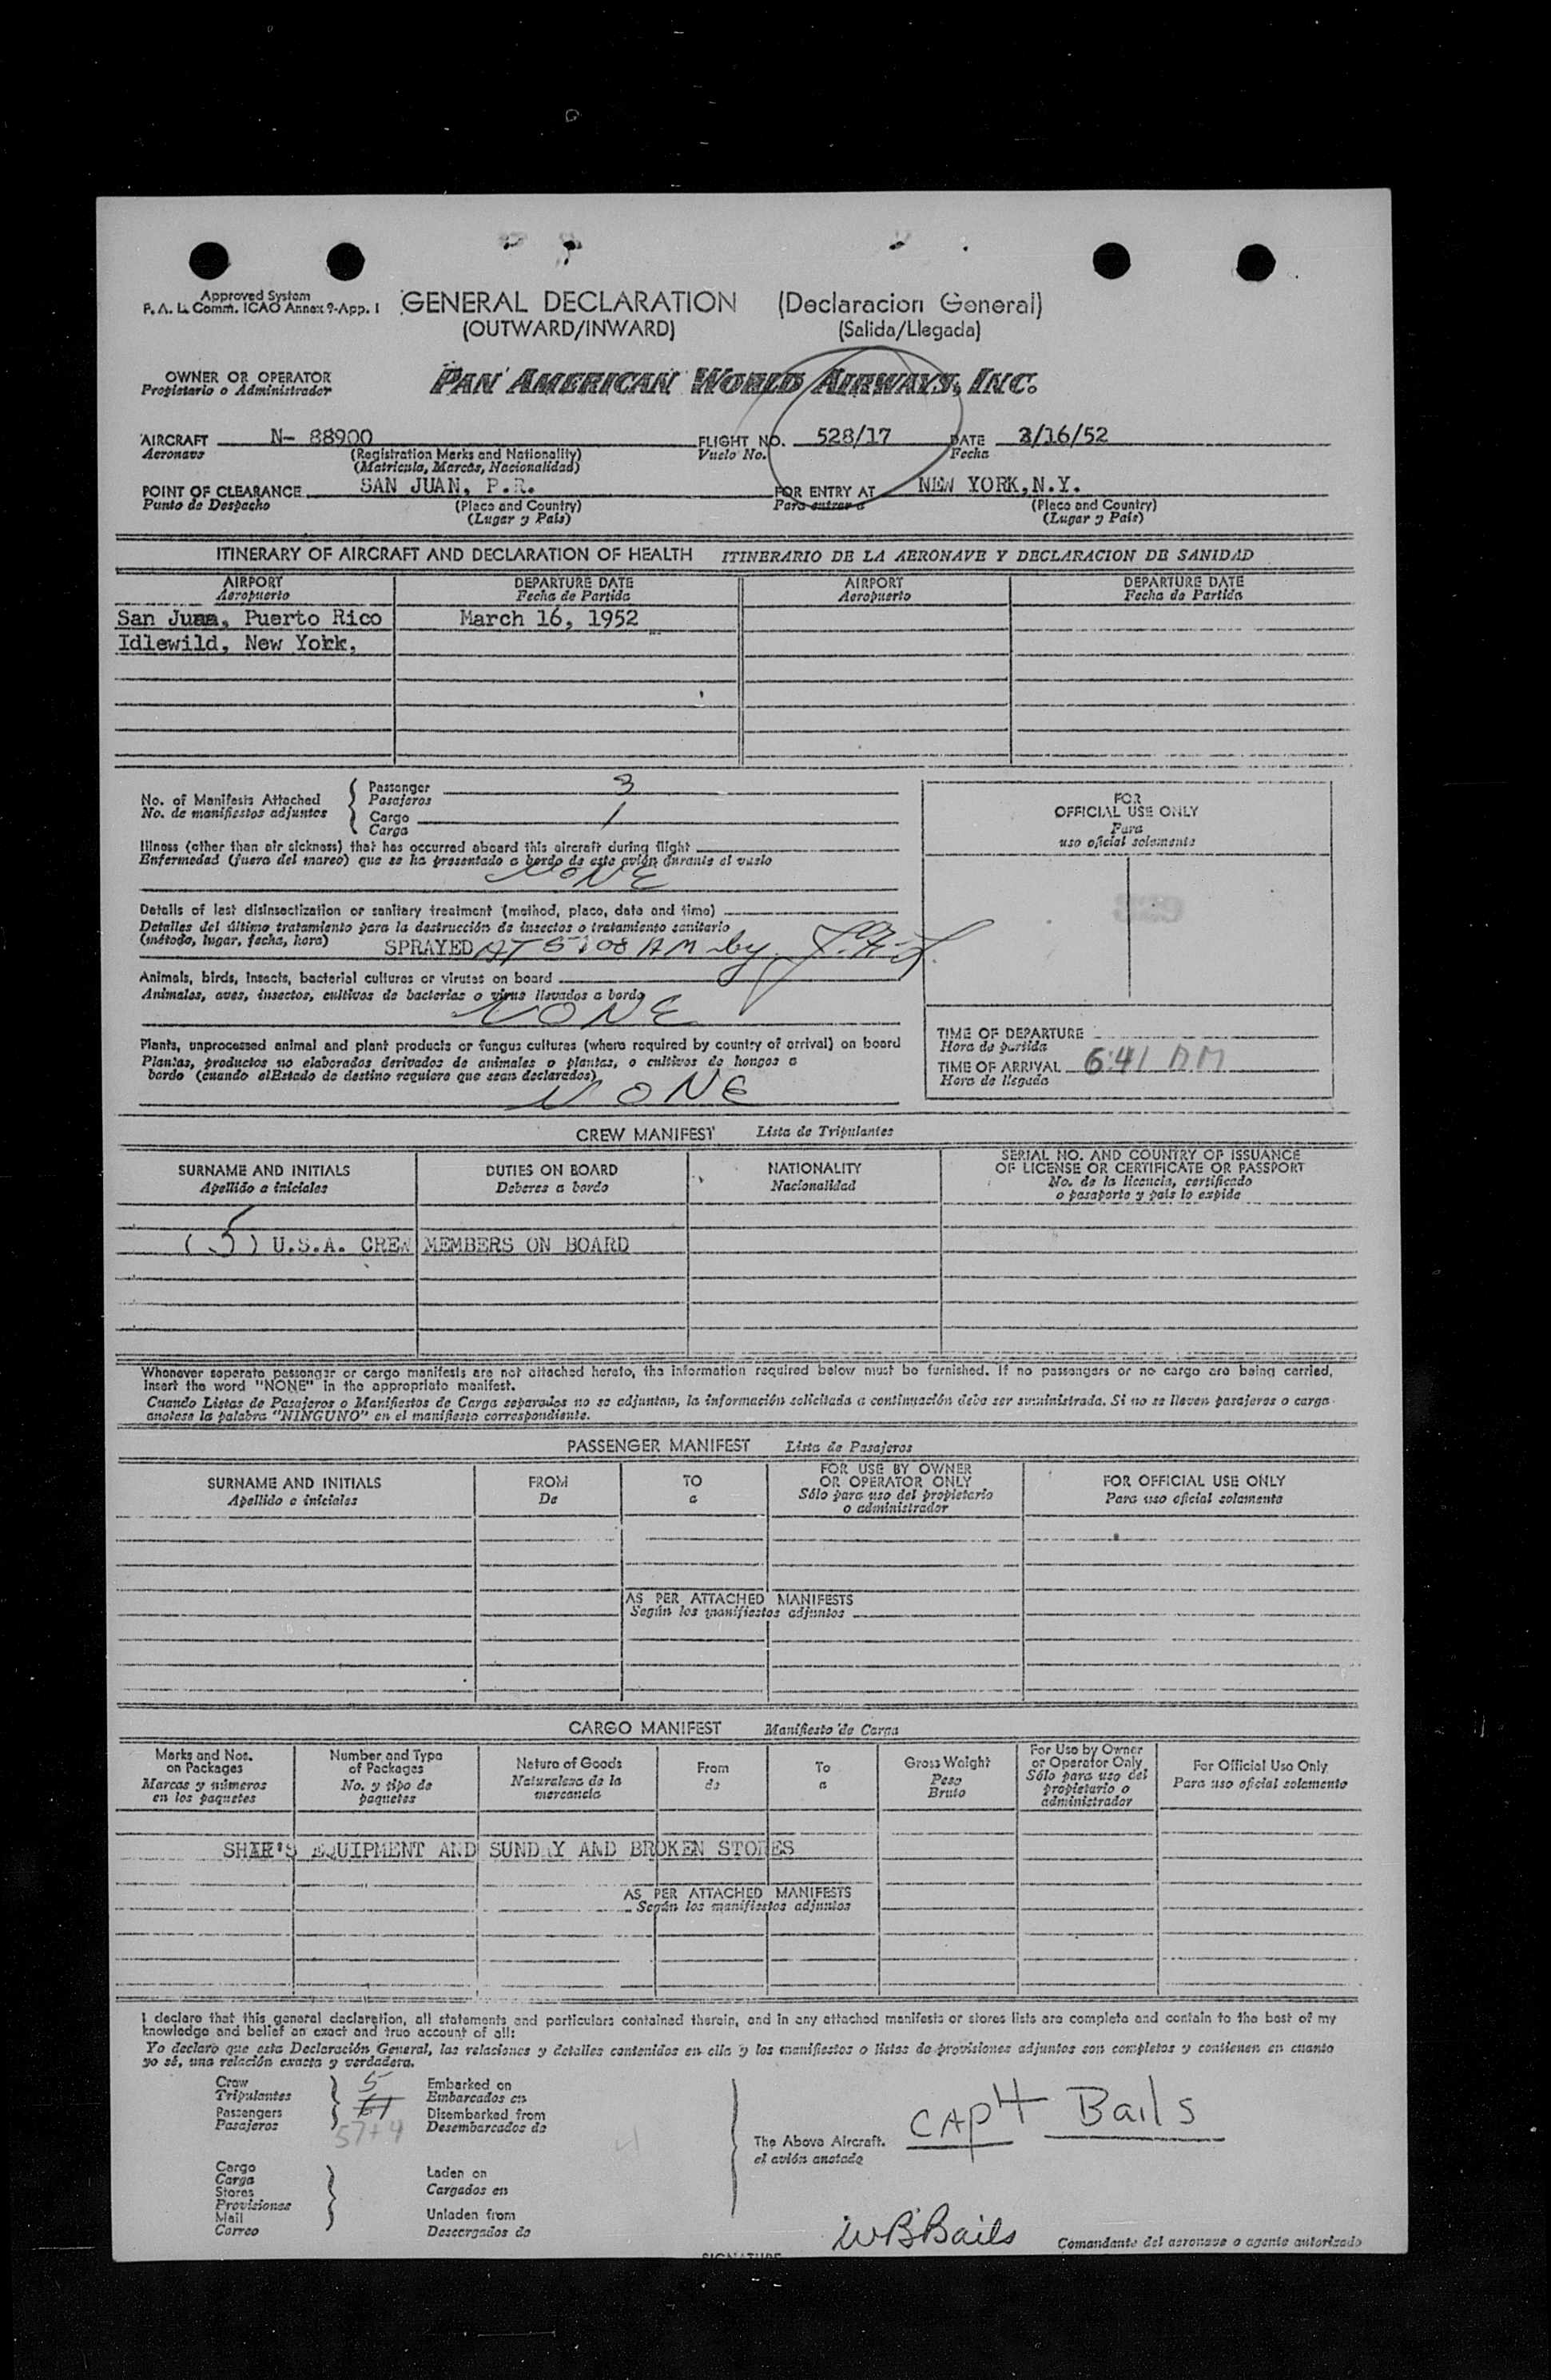 Approved System
F. A. L. Comm. ICAO Annex 9-App. I
GENERAL DECLARATION (Declaracion General)
(OUTWARD/INWARD) (Salida/Llegada)
OWNER OR OPERATOR
Propietario o Administrador
PAN AMERICAN WORLD AIRWAYS, INC.
AIRCRAFT N- 88900 FLIGHT NO. 528/17 DATE 3/16/52
Aeronave (Registration Marks and Nationality) Vuelo No. Fecha
(Matricula, Marcas, Nacionalidad)
POINT OF CLEARANCE SAN JUAN, P.R. FOR ENTRY AT NEW YORK,N.Y.
Punto de Despacho (Place and Country) Para entrar a (Place and Country)
(Lugar y País) (Lugar y País)
ITINERARY OF AIRCRAFT AND DECLARATION OF HEALTH ITINERARIO DE LA AERONAVE Y DECLARACION DE SANIDAD
AIRPORT DEPARTURE DATE AIRPORT DEPARTURE DATE
Aeropuerto Fecha de Partida Aeropuerto Fecha de Partida
San Juan, Puerto Rico March 16, 1952
Idlewild, New York,
No. of Manifests Attached
No. de manifiestos adjuntos
Passenger 3
Pasajeros
Cargo 1
Carga
Illness (other than air sickness) that has occurred aboard this aircraft during flight
Enfermedad (fuera del mareo) que se ha presentado a bordo de este avión durante el vuelo
NONE
Details of last disinsectization or sanitary treatment (method, place, date and time)
Detalles del último tratamiento para la destrucción de insectos o tratamiento sanitario
(método, lugar, fecha, hora) SPRAYED AT 5:08 AM by
Animals, birds, insects, bacterial cultures or viruses on board
Animales, aves, insectos, cultivos de bacterias o virus llevados a bordo
NONE
Plants, unprocessed animal and plant products or fungus cultures (where required by country of arrival) on board
Plantas, productos no elaborados derivados de animales o plantas, o cultivos de hongos a
bordo (cuando elEstado de destino requiere que sean declarados)
NONE
FOR
OFFICIAL USE ONLY
Para
uso oficial solamente
TIME OF DEPARTURE
Hora de partida
TIME OF ARRIVAL 6:41 AM
Hora de llegada
CREW MANIFEST Lista de Tripulantes
SURNAME AND INITIALS DUTIES ON BOARD NATIONALITY SERIAL NO. AND COUNTRY OF ISSUANCE
OF LICENSE OR CERTIFICATE OR PASSPORT
Apellido a iniciales Deberes a bordo Nacionalidad No. de la licencia, certificado
o pasaporte y país lo expide
(5) U.S.A. CREW MEMBERS ON BOARD
Whenever separate passenger or cargo manifests are not attached hereto, the information required below must be furnished. If no passengers or no cargo are being carried,
insert the word "NONE" in the appropriate manifest.
Cuando Listas de Pasajeros o Manifiestos de Carga separados no se adjuntan, la información solicitada a continuación debe ser suministrada. Si no se lleven pasajeros o carga
anotese la palabra "NINGUNO" en el manifiesto correspondiente.
PASSENGER MANIFEST Lista de Pasajeros
SURNAME AND INITIALS FROM TO FOR USE BY OWNER
OR OPERATOR ONLY FOR OFFICIAL USE ONLY
Apellido e iniciales De a Sólo para uso del propietario
o administrador Para uso oficial solamente
AS PER ATTACHED MANIFESTS
Según los manifiestos adjuntos
CARGO MANIFEST Manifiesto de Carga
Marks and Nos.
on Packages
Marcas y números
en los paquetes
Number and Type
of Packages
No. y tipo de
paquetes
Nature of Goods
Naturaleza de la
mercancia
From
de
To
a
Gross Weight
Peso
Bruto
For Use by Owner
or Operator Only
Sólo para uso del
propietario o
administrador
For Official Use Only
Para uso oficial solamente
EQUIPMENT AND SUNDRY AND BROKEN STORES
AS PER ATTACHED MANIFESTS
Según los manifiestos adjuntos
I declare that this general declaration, all statements and particulars contained therein, and in any attached manifests or stores lists are complete and contain to the best of my
knowledge and belief an exact and true account of all:
Yo declaro que esta Declaración General, las relaciones y detalles contenidos en ella y los manifiestos o listas de provisiones adjuntos son completos y contienen en cuanto
yo sé, una relación exacta y verdadera.
Crew 5 Embarked on
Tripulantes Embarcados en
Passengers 61 Disembarked from
Pasajeros 57+4 Desembarcados de
The Above Aircraft.
el avión anotado
CAPt Bails
Cargo
Carga
Stores
Provisiones
Mail
Correo
Laden on
Cargados en
Unladen from
Descargados de
WB Bails
Comandante del aeronave o agente autorizado
SIGNATURE